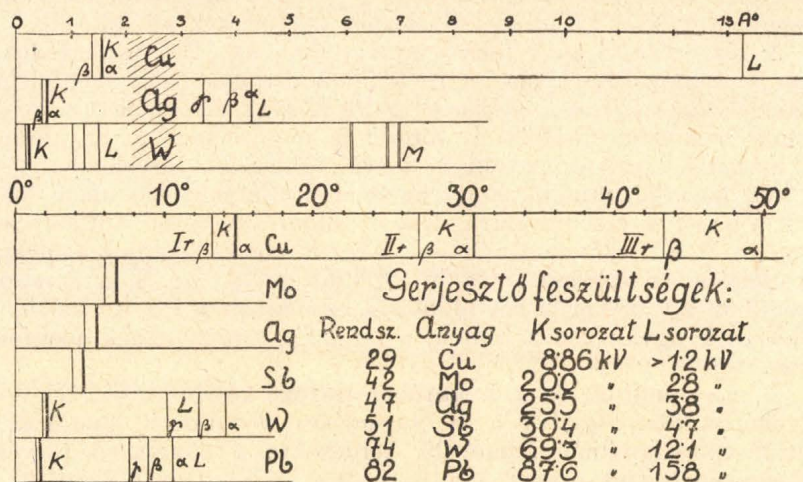 0 1 2 3 4 5 6 7 8 9 10 11 13 A°
β K α Cu L
β K α Ag γ β α L
K L W M
0° 10° 20° 30° 40° 50°
Ir β K α Cu IIr β K α IIIr β K α
Mo
Ag
Sb
K γ L β α W
K γ β α L Pb
Gerjesztő feszültségek:
Rendsz. Anyag K sorozat L sorozat
29 Cu 8·86 kV >1·2 kV
42 Mo 20·0 " 2·8 "
47 Ag 25·5 " 3·8 "
51 Sb 30·4 " 4·7 "
74 W 69·3 " 12·1 "
82 Pb 87·6 " 15·8 "